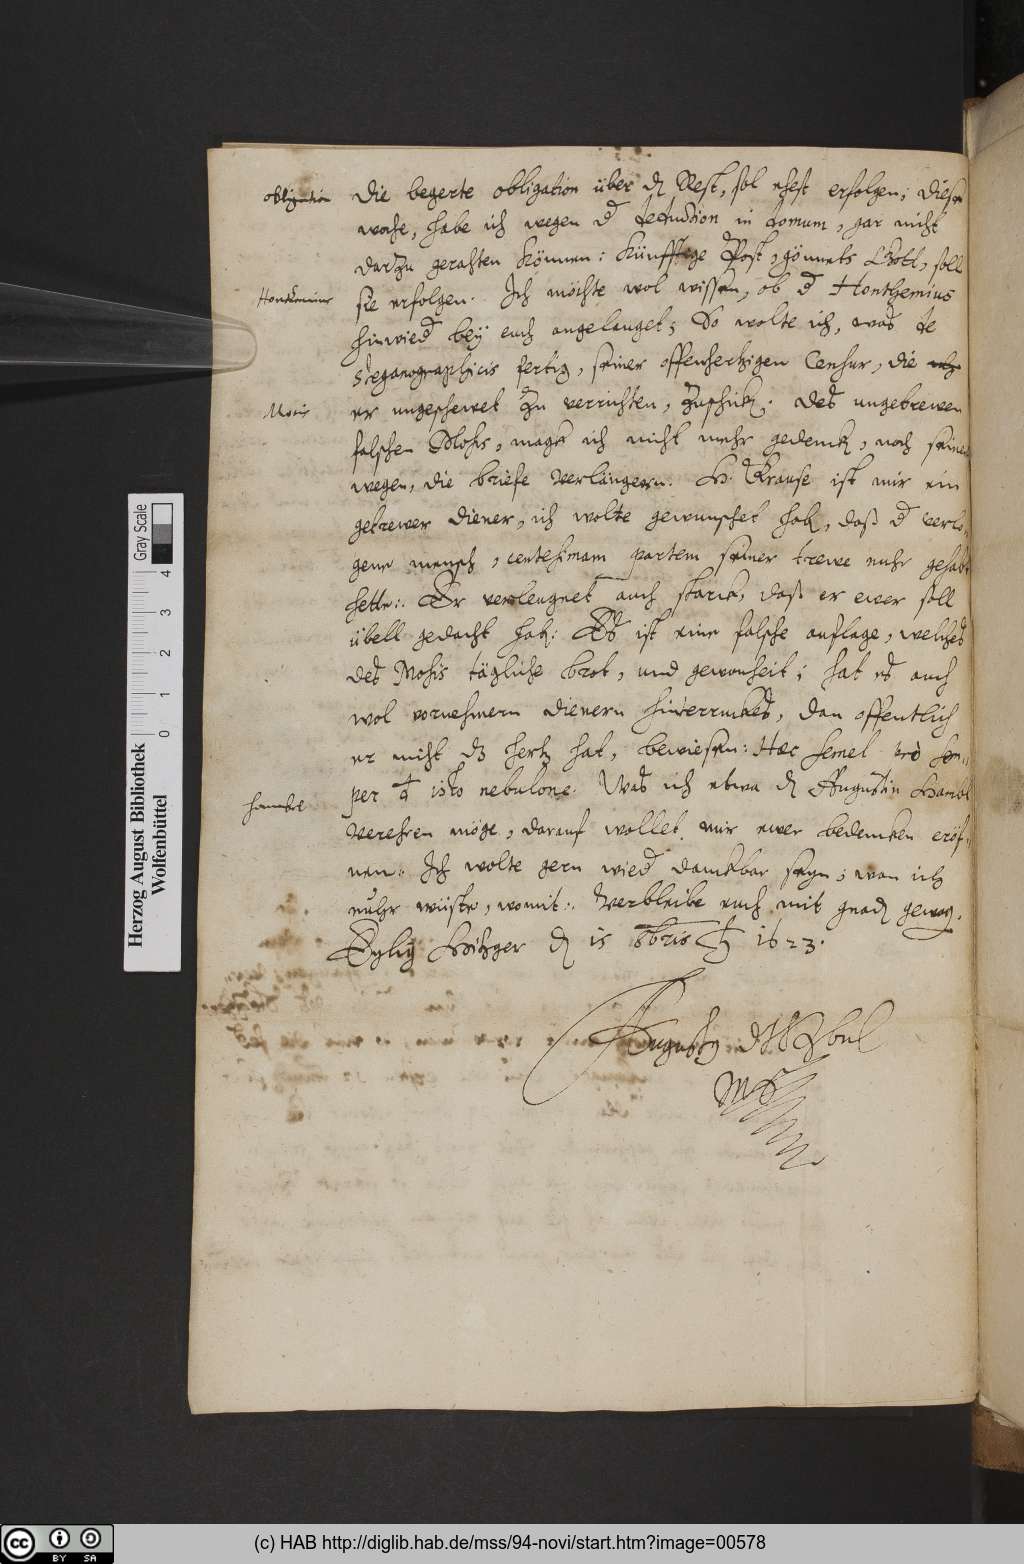 obligation
Die begerte obligation über dẽ Rest, sol ehest erfolgen; Diese
woche, habe ich wegen d' deduction in domum, gar nicht
darzu gerahten können: Künfftige Post, gönnets Gott, soll
Honthemius
sie erfolgen. Ich möchte wol wissen, ob d' Honthemius
hinwied' beÿ euch angelanget; So wolte ich, was de
Steganographicis fertig, seiner offenhertzigen Censur, die
Mosis
er ungeschewet zu verrichten, zuschickẽ. Des ungetrewen
falschen Mosis, mag ich nicht mehr gedenckẽ, noch seinet
wegen, die briefe verlängern. H. Krause ist mir ein
getrewer diener, ich wolte gewunschet habẽ, daß d' verlo-
gene mensch, centesimam partem seiner trewe nuhr gehabt
hette: Er verleugnet auch starck, daß er ewer soll
übell gedacht habẽ: Es ist eine falsche auflage, welches
des Mosis tägliche brot, und gewonheit; hat es auch
wol vornehmern dienern hinderruckes, dan offentlich
er nicht dz hertz hat, bewiesen: Haec semel pro sem-
per de isto nebulone. Was ich etwa dẽ Augustin
Hambl
verehren möge, darauf wollet mir ewer bedencken eröf-
nen: Ich wolte gern wied' danckbar seyn; wan ich
nuhr wüste, womit. Verbleibe euch mit gnadẽ gewogẽ.
Eylig Hitzger dẽ 15 8bris 1623.
Augustus HZBuL
Mp
Herzog August Bibliothek
Wolfenbüttel
Gray Scale
0 1 2 3 4
cc BY SA
(c) HAB http://diglib.hab.de/mss/94-novi/start.htm?image=00578